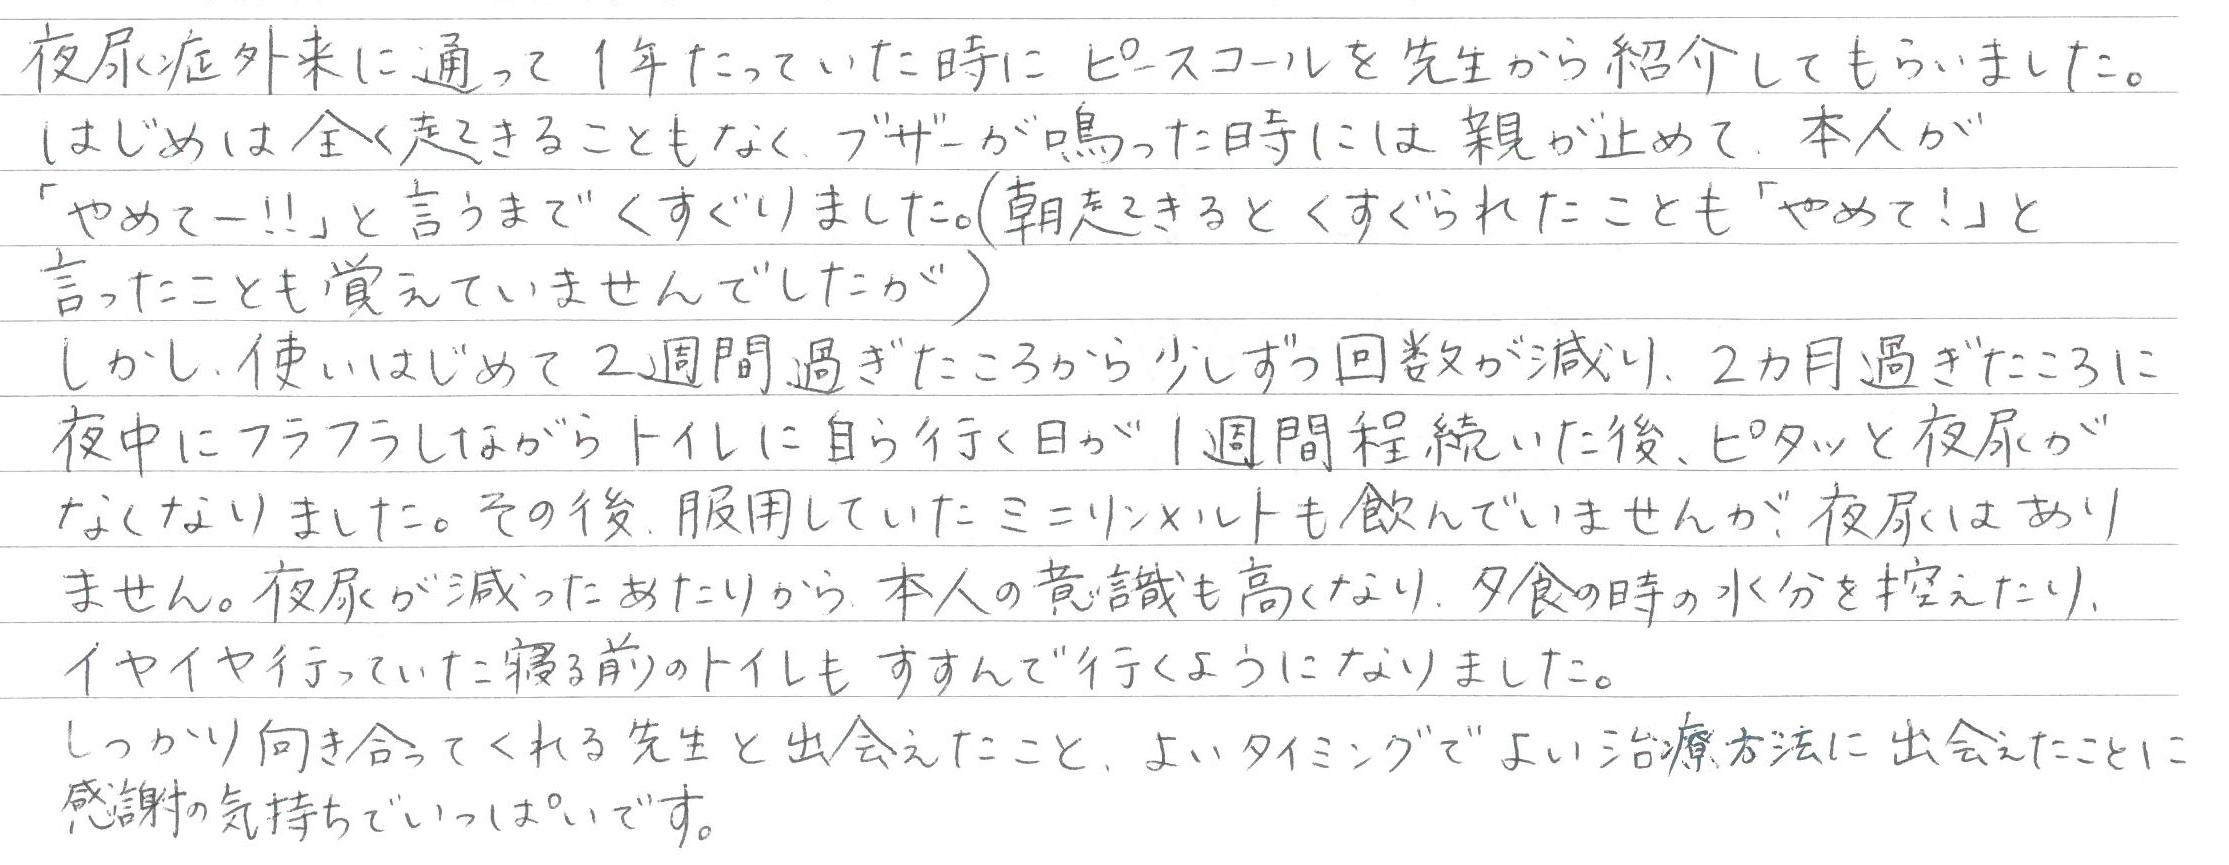 夜尿症外来に通って1年たっていた時にピースコールを先生から紹介してもらいました。
はじめは全く起きることもなく、ブザーが鳴った時には親が止めて、本人が
「やめてー!!」と言うまでくすぐりました。(朝起きるとくすぐられたことも「やめて!」と
言ったことも覚えていませんでしたが)
しかし、使いはじめて2週間過ぎたころから少しずつ回数が減り、2カ月過ぎたころに
夜中にフラフラしながらトイレに自ら行く日が1週間程続いた後、ピタッと夜尿が
なくなりました。その後、服用していたミニリンメルトも飲んでいませんが、夜尿はあり
ません。夜尿が減ったあたりから、本人の意識も高くなり、夕食の時の水分を控えたり、
イヤイヤ行っていた寝る前のトイレもすすんで行くようになりました。
しっかり向き合ってくれる先生と出会えたこと、よいタイミングでよい治療方法に出会えたことに
感謝の気持ちでいっぱいです。